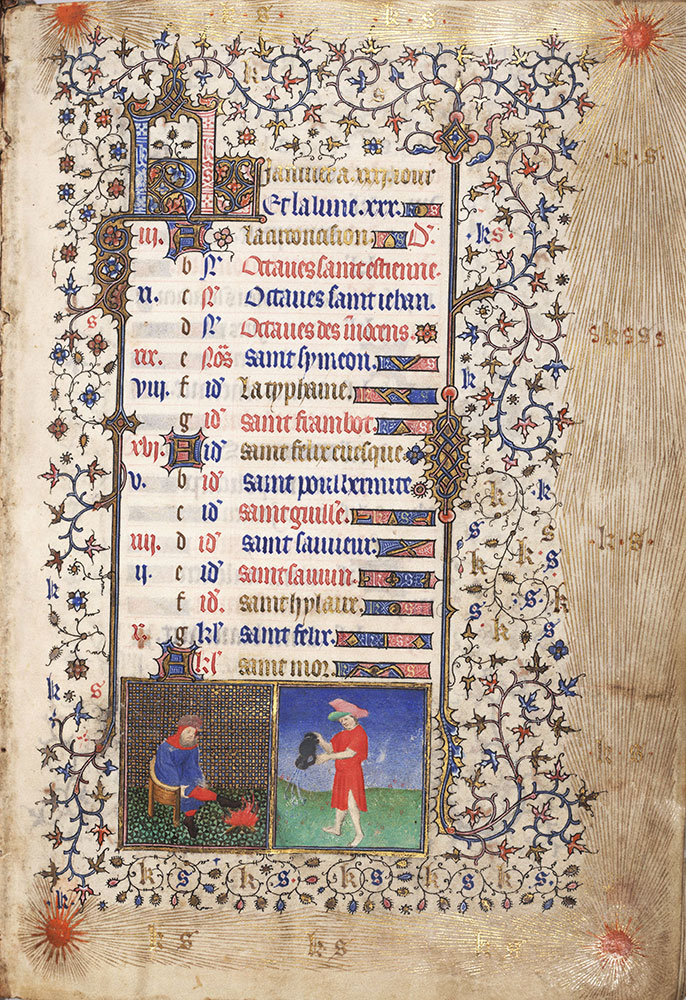 k · s ·
k · s ·
KL Januier a .xxxi. iour
Et la lune .xxx.
iii. A La circoncision. D'.
b N' Octaues saint estienne.
xi. c N' Octaues saint iehan.
d N' Octaues des innocens.
xix. e No'as saint symeon.
viii. f id' La typhaine.
g id' saint frambot.
xvi. A id' saint felix euesque
v. b id' saint poul hermite
c id' saint guille'.
xiii. d id' saint sauueur.
ii. e id' saint sauuin.
f id' saint hylaire.
x. g kl' saint felix.
A kl' saint mor.
k s
· k · s ·
· k s
s k s s s
· k
· k · s ·
k s
k · s · k · s · k · s · k · s · k · s
k s
k s
k s